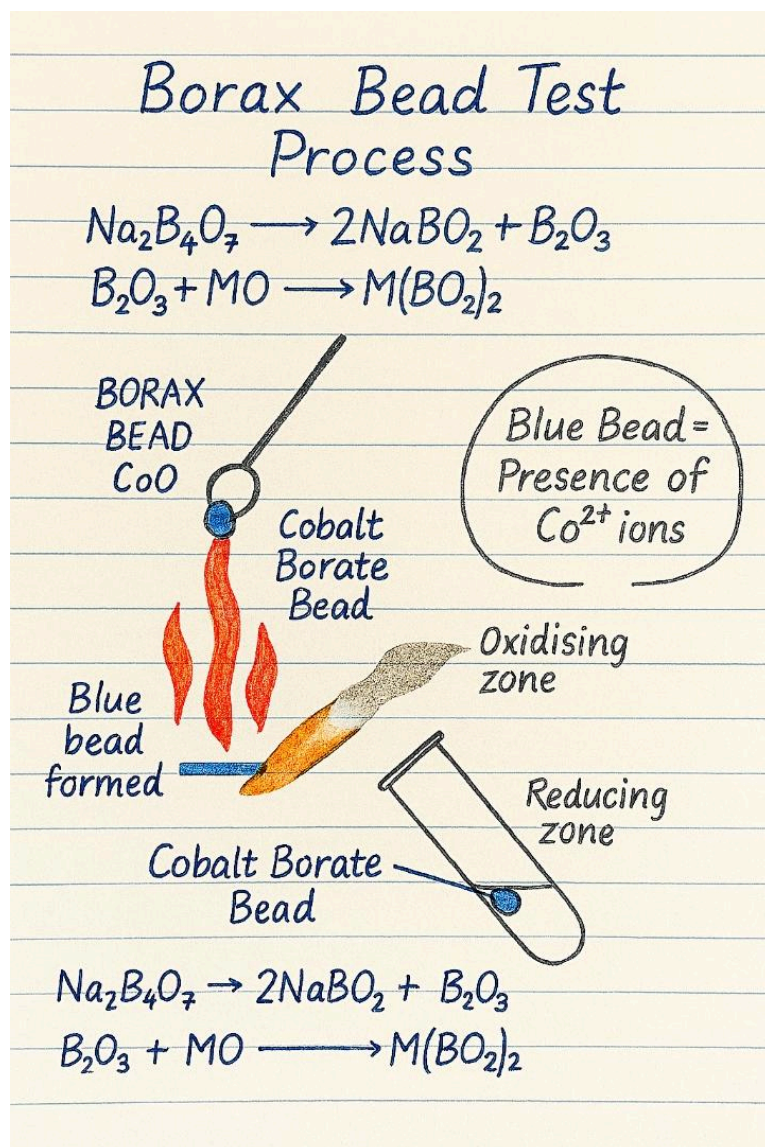 Borax Bead Test
Process
Na₂B₄O₇ ⟶ 2NaBO₂ + B₂O₃
B₂O₃ + MO ⟶ M(BO₂)₂
BORAX
BEAD
CoO
Blue Bead =
Presence of
Co²⁺ ions
Cobalt
Borate
Bead
Oxidising
zone
Blue
bead
formed
Reducing
zone
Cobalt Borate
Bead
Na₂B₄O₇ → 2NaBO₂ + B₂O₃
B₂O₃ + MO ⟶ M(BO₂)₂